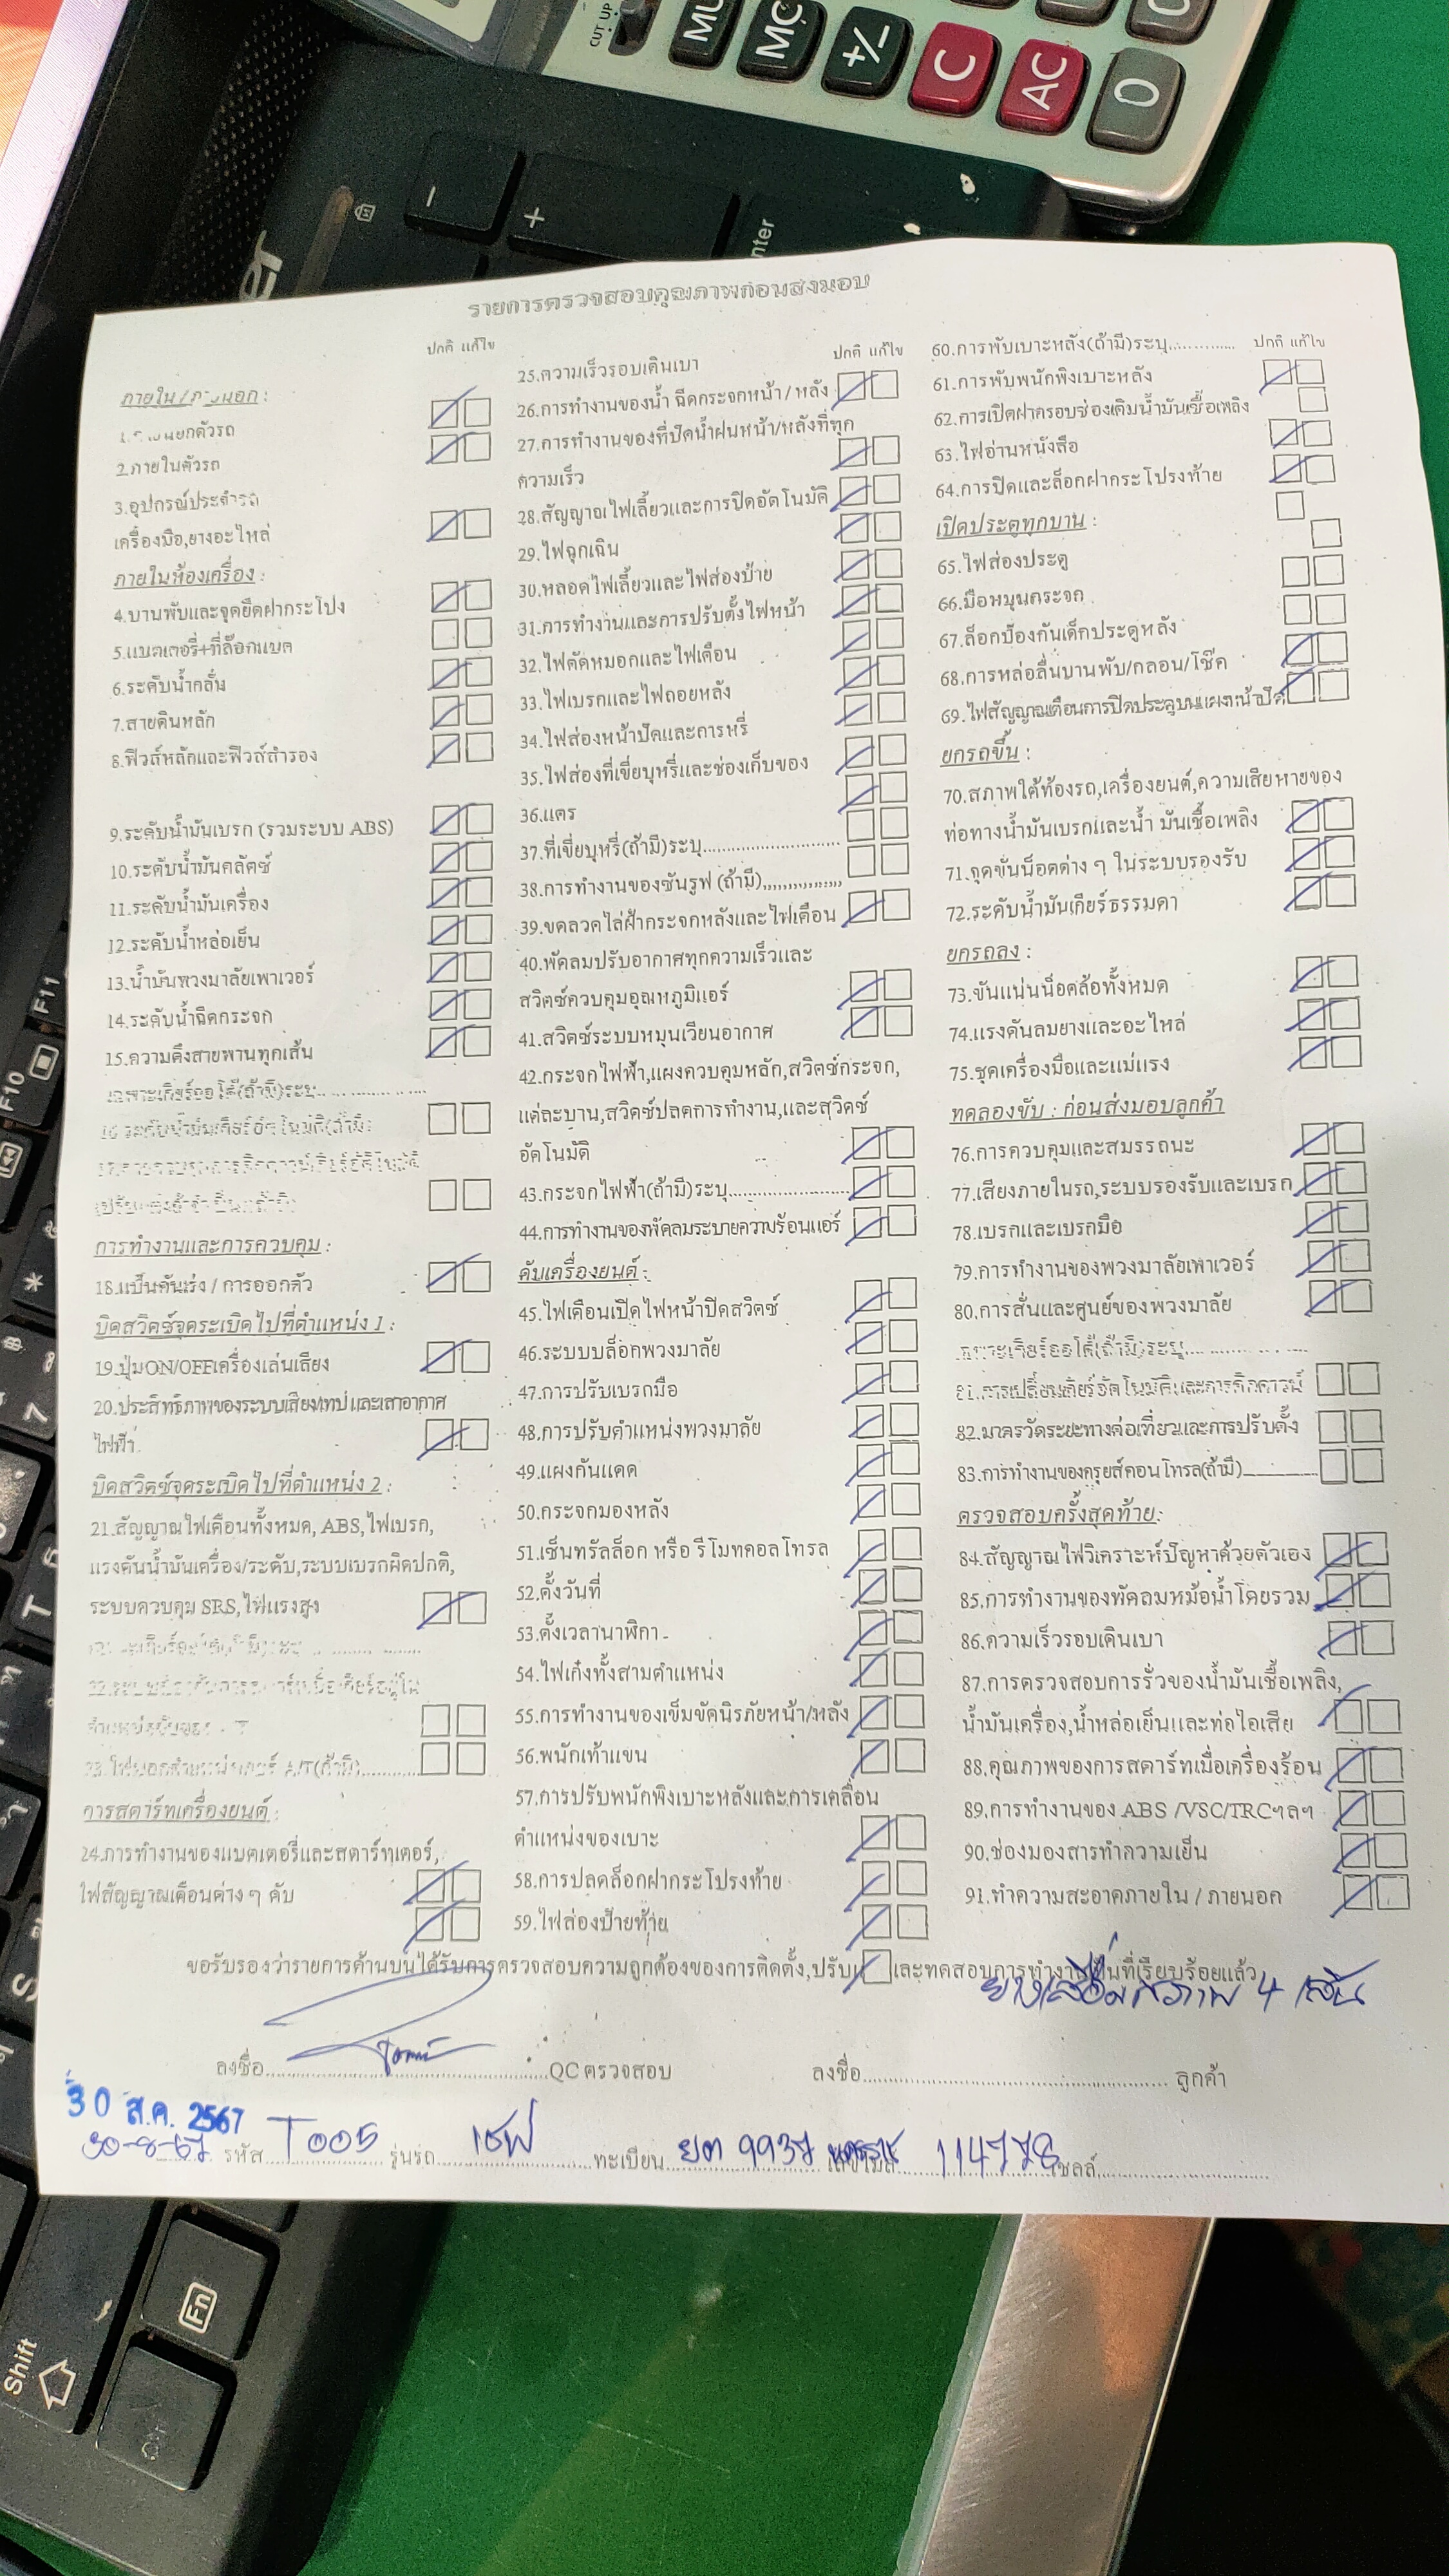 CUT UP
MU
MC
+/-
C
AC
0
-
+
nter
รายการตรวจสอบคุณภาพก่อนส่งมอบ
ปกติ แก้ไข
ภายใน / ภายนอก :
2.ภายในตัวรถ
3.อุปกรณ์ประจำรถ
เครื่องมือ,ยางอะไหล่
ภายในห้องเครื่อง :
4.บานพับและจุดยึดฝากระโปง
5.แบตเตอรี่+ที่ล๊อกแบต
6.ระดับน้ำกลั่น
7.สายดินหลัก
8.ฟิวส์หลักและฟิวส์สำรอง
9.ระดับน้ำมันเบรก (รวมระบบ ABS)
10.ระดับน้ำมันคลัตซ์
11.ระดับน้ำมันเครื่อง
12.ระดับน้ำหล่อเย็น
13.น้ำมันพวงมาลัยเพาเวอร์
14.ระดับน้ำฉีดกระจก
15.ความตึงสายพานทุกเส้น
การทำงานและการควบคุม :
18.แป้นคันเร่ง / การออกตัว
บิดสวิตซ์จุดระเบิดไปที่ตำแหน่ง 1 :
19.ปุ่มON/OFFเครื่องเล่นเสียง
20.ประสิทธิภาพของระบบเสียงเทป และเสาอากาศ
ไฟฟ้า
บิดสวิตซ์จุดระเบิดไปที่ตำแหน่ง 2 :
21.สัญญาณไฟเตือนทั้งหมด, ABS,ไฟเบรก,
แรงดันน้ำมันเครื่อง/ระดับ,ระบบเบรกผิดปกติ,
ระบบควบคุม SRS,ไฟแรงสูง
การสตาร์ทเครื่องยนต์ :
24.การทำงานของแบตเตอรี่และสตาร์ทเตอร์,
ไฟสัญญาณเตือนต่าง ๆ ดับ
25.ความเร็วรอบเดินเบา
ปกติ แก้ไข
26.การทำงานของน้ำ ฉีดกระจกหน้า / หลัง
27.การทำงานของที่ปัดน้ำฝนหน้า/หลังที่ทุก
ความเร็ว
28.สัญญาณไฟเลี้ยวและการปิดอัตโนมัติ
29.ไฟฉุกเฉิน
30.หลอดไฟเลี้ยวและไฟส่องป้าย
31.การทำงานและการปรับตั้งไฟหน้า
32.ไฟตัดหมอกและไฟเตือน
33.ไฟเบรกและไฟถอยหลัง
34.ไฟส่องหน้าปัดและการหรี่
35.ไฟส่องที่เขี่ยบุหรี่และช่องเก็บของ
36.แตร
37.ที่เขี่ยบุหรี่(ถ้ามี)ระบุ
38.การทำงานของซันรูฟ (ถ้ามี)
39.ขดลวดไล่ฝ้ากระจกหลังและไฟเตือน
40.พัดลมปรับอากาศทุกความเร็วและ
สวิตซ์ควบคุมอุณหภูมิแอร์
41.สวิตซ์ระบบหมุนเวียนอากาศ
42.กระจกไฟฟ้า,แผงควบคุมหลัก,สวิตซ์กระจก,
แต่ละบาน,สวิตซ์ปลดการทำงาน,และสวิตซ์
อัตโนมัติ
43.กระจกไฟฟ้า(ถ้ามี)ระบุ
44.การทำงานของพัดลมระบายความร้อนแอร์
ดับเครื่องยนต์ :
45.ไฟเตือนเปิดไฟหน้าปิดสวิตซ์
46.ระบบบล็อกพวงมาลัย
47.การปรับเบรกมือ
48.การปรับตำแหน่งพวงมาลัย
49.แผงกันแดด
50.กระจกมองหลัง
51.เซ็นทรัลล็อก หรือ รีโมทคอลโทรล
52.ตั้งวันที่
53.ตั้งเวลานาฬิกา
54.ไฟเก๋งทั้งสามตำแหน่ง
55.การทำงานของเข็มขัดนิรภัยหน้า/หลัง
56.พนักเท้าแขน
57.การปรับพนักพิงเบาะหลังและการเคลื่อน
ตำแหน่งของเบาะ
58.การปลดล็อกฝากระโปรงท้าย
59.ไฟส่องป้ายท้าย
60.การพับเบาะหลัง(ถ้ามี)ระบุ
ปกติ แก้ไข
61.การพับพนักพิงเบาะหลัง
62.การเปิดฝาครอบช่องเติมน้ำมันเชื้อเพลิง
63.ไฟอ่านหนังสือ
64.การปิดและล็อกฝากระโปรงท้าย
เปิดประตูทุกบาน :
65.ไฟส่องประตู
66.มือหมุนกระจก
67.ล็อกป้องกันเด็กประตูหลัง
68.การหล่อลื่นบานพับ/กลอน/โช๊ค
69.ไฟสัญญาณเตือนการปิดประตูบนแผงหน้าปัด
ยกรถขึ้น :
70.สภาพใต้ท้องรถ,เครื่องยนต์,ความเสียหายของ
ท่อทางน้ำมันเบรกและน้ำ มันเชื้อเพลิง
71.จุดขันน็อตต่าง ๆ ในระบบรองรับ
72.ระดับน้ำมันเกียร์ธรรมดา
ยกรถลง :
73.ขันแน่นน็อตล้อทั้งหมด
74.แรงดันลมยางและอะไหล่
75.ชุดเครื่องมือและแม่แรง
ทดลองขับ : ก่อนส่งมอบลูกค้า
76.การควบคุมและสมรรถนะ
77.เสียงภายในรถ,ระบบรองรับและเบรก
78.เบรกและเบรกมือ
79.การทำงานของพวงมาลัยเพาเวอร์
80.การสั่นและศูนย์ของพวงมาลัย
81.การเปลี่ยนเกียร์อัตโนมัติและการคิกดาวน์
82.มาตรวัดระยะทางต่อเที่ยวและการปรับตั้ง
83.การทำงานของครุยส์คอนโทรล(ถ้ามี)
ตรวจสอบครั้งสุดท้าย:
84.สัญญาณไฟวิเคราะห์ปัญหาด้วยตัวเอง
85.การทำงานของพัดลมหม้อน้ำโดยรวม
86.ความเร็วรอบเดินเบา
87.การตรวจสอบการรั่วของน้ำมันเชื้อเพลิง,
น้ำมันเครื่อง,น้ำหล่อเย็นและท่อไอเสีย
88.คุณภาพของการสตาร์ทเมื่อเครื่องร้อน
89.การทำงานของ ABS /VSC/TRCฯลฯ
90.ช่องมองสารทำความเย็น
91.ทำความสะอาดภายใน / ภายนอก
ขอรับรองว่ารายการด้านบนได้รับการตรวจสอบความถูกต้องของการติดตั้ง,ปรับ และทดสอบการทำงานเป็นที่เรียบร้อยแล้ว
ยางเสื่อมสภาพ 4 เส้น
ลงชื่อ QC ตรวจสอบ ลงชื่อ ลูกค้า
30 ส.ค. 2567
30-8-67 รหัส T005 รุ่นรถ เชฟ ทะเบียน ยต 9937 114778 เซลล์
F11
F10
Fn
Shift